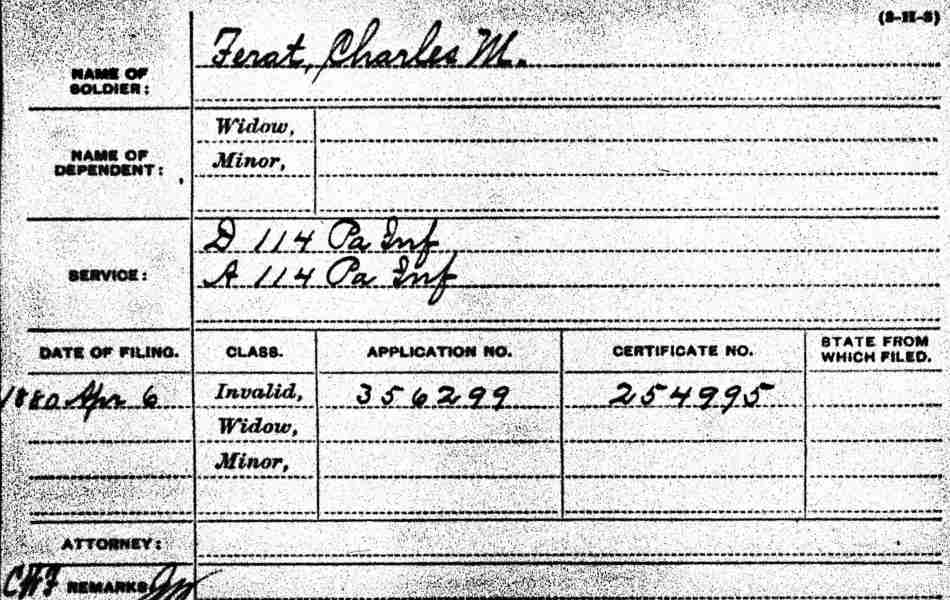 (3-II-3)
NAME OF SOLDIER: Ferat, Charles M.
NAME OF DEPENDENT:
Widow,
Minor,
SERVICE:
D 114 Pa Inf
A 114 Pa Inf
DATE OF FILING. CLASS. APPLICATION NO. CERTIFICATE NO. STATE FROM WHICH FILED.
1880 Apr 6 Invalid, 356299 254995
Widow,
Minor,
ATTORNEY:
REMARKS